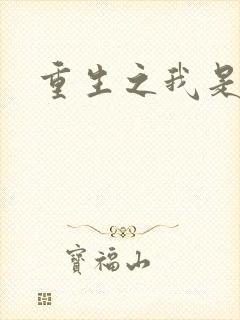 重生之我是
寶福山